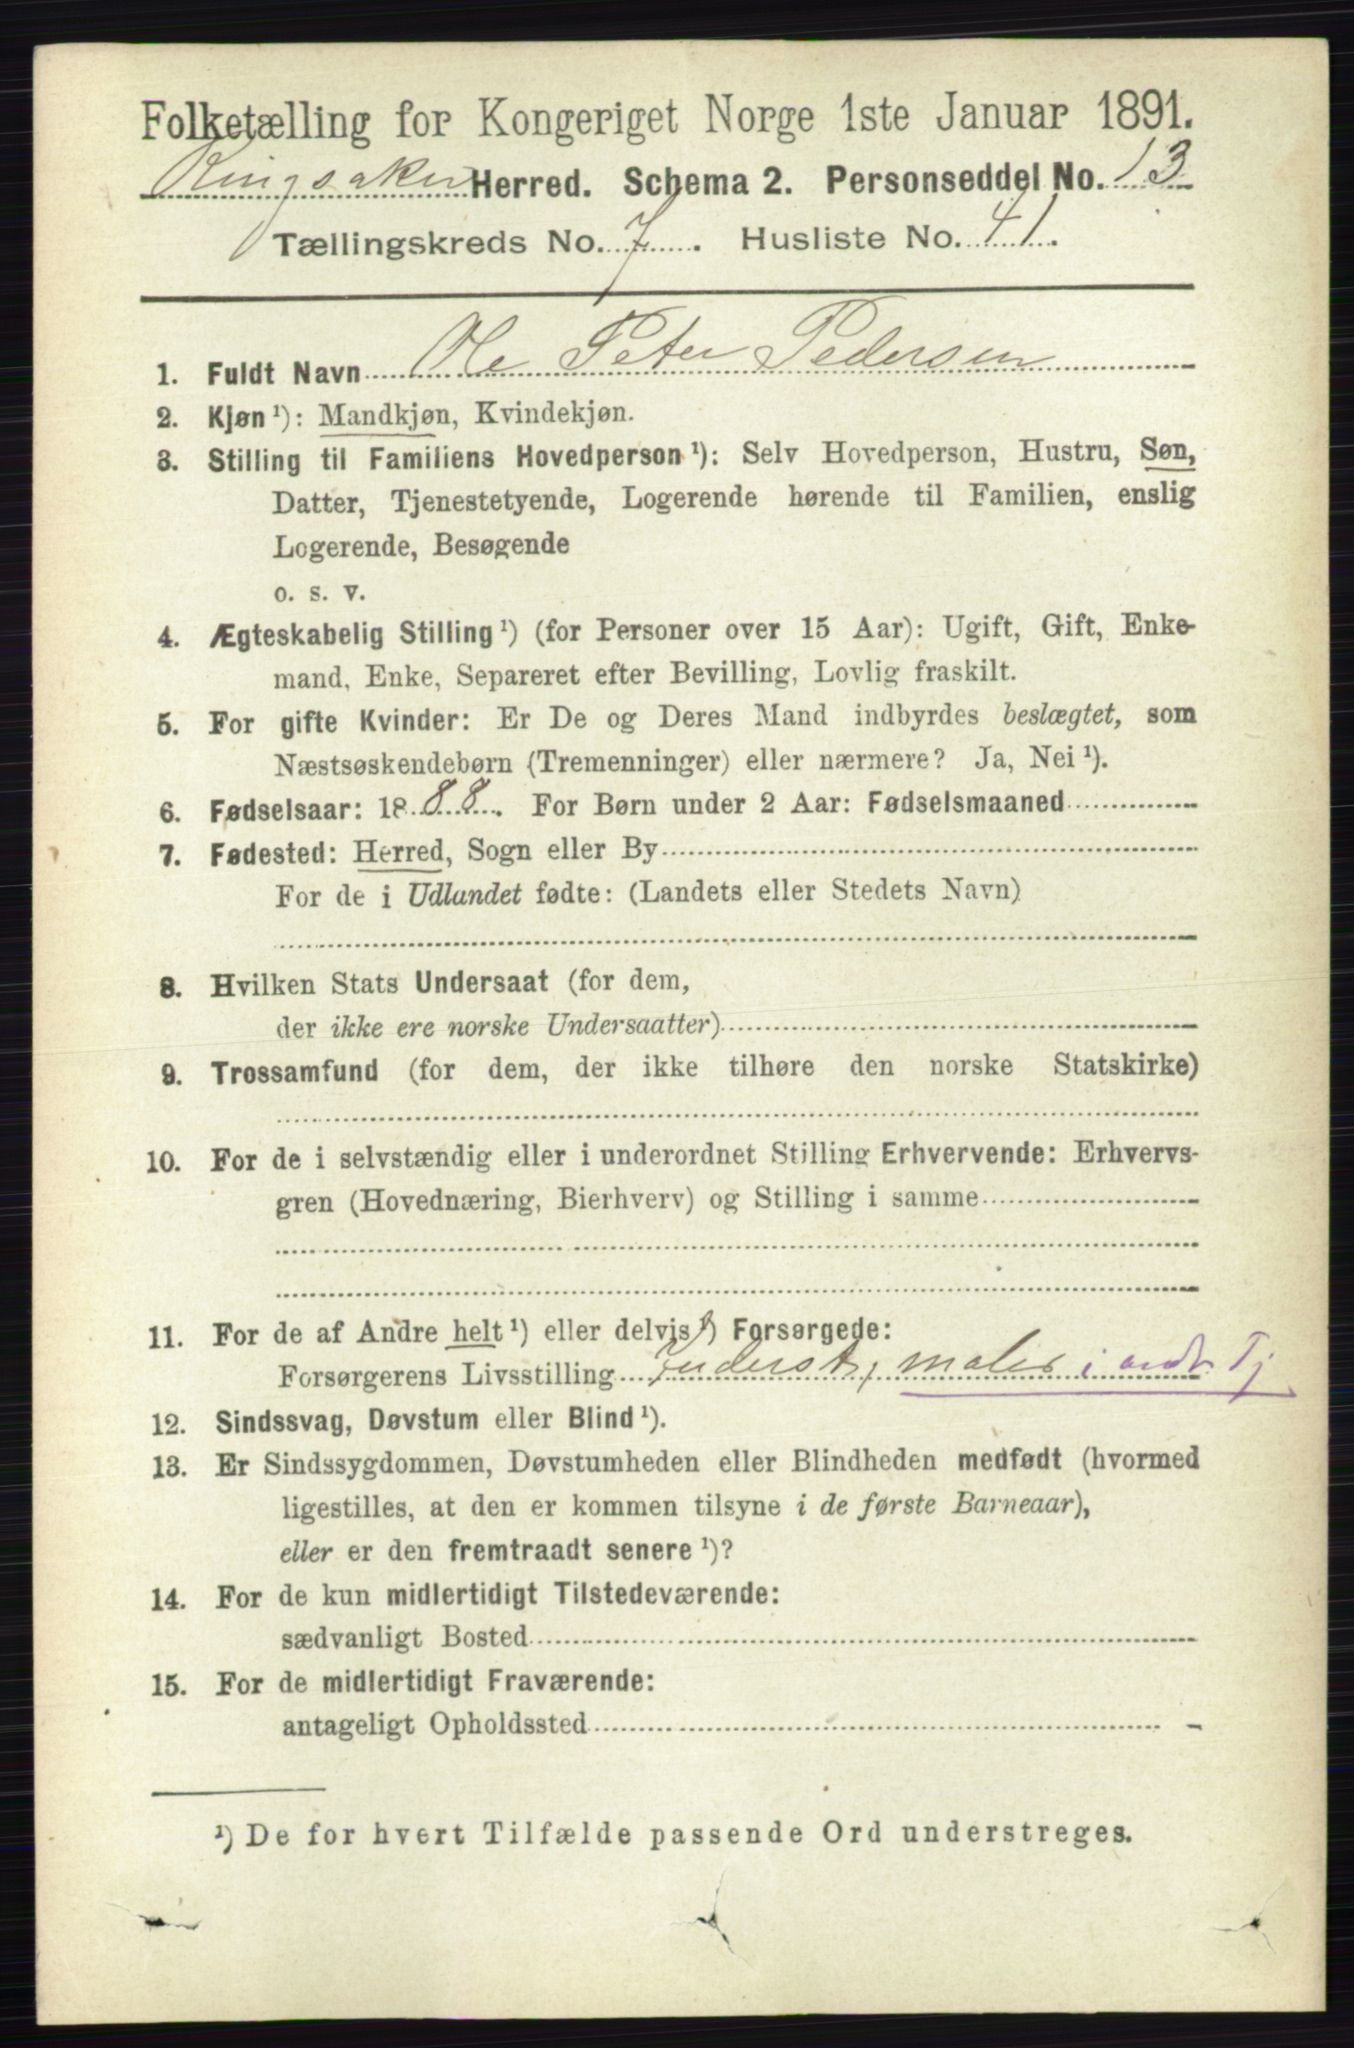 Folketælling for Kongeriget Norge 1ste Januar 1891.
Ringsaker Herred. Schema 2. Personseddel No. 13
Tællingskreds No. 7. Husliste No. 41.
1. Fuldt Navn Ole Peter Pedersen
2. Kjøn ¹): Mandkjøn, Kvindekjøn.
3. Stilling til Familiens Hovedperson ¹): Selv Hovedperson, Hustru, Søn,
Datter, Tjenestetyende, Logerende hørende til Familien, enslig
Logerende, Besøgende
o. s. v.
4. Ægteskabelig Stilling ¹) (for Personer over 15 Aar): Ugift, Gift, Enke-
mand, Enke, Separeret efter Bevilling, Lovlig fraskilt.
5. For gifte Kvinder: Er De og Deres Mand indbyrdes beslægtet, som
Næstsøskendebørn (Tremenninger) eller nærmere? Ja, Nei ¹).
6. Fødselsaar: 1888. For Børn under 2 Aar: Fødselsmaaned
7. Fødested: Herred, Sogn eller By
For de i Udlandet fødte: (Landets eller Stedets Navn)
8. Hvilken Stats Undersaat (for dem,
der ikke ere norske Undersaatter)
9. Trossamfund (for dem, der ikke tilhøre den norske Statskirke)
10. For de i selvstændig eller i underordnet Stilling Erhvervende: Erhvervs-
gren (Hovednæring, Bierhverv) og Stilling i samme
11. For de af Andre helt ¹) eller delvis ¹) Forsørgede:
Forsørgerens Livsstilling Inderst, maler i andr. Tj
12. Sindssvag, Døvstum eller Blind ¹).
13. Er Sindssygdommen, Døvstumheden eller Blindheden medfødt (hvormed
ligestilles, at den er kommen tilsyne i de første Barneaar),
eller er den fremtraadt senere ¹)?
14. For de kun midlertidigt Tilstedeværende:
sædvanligt Bosted
15. For de midlertidigt Fraværende:
antageligt Opholdssted
¹) De for hvert Tilfælde passende Ord understreges.